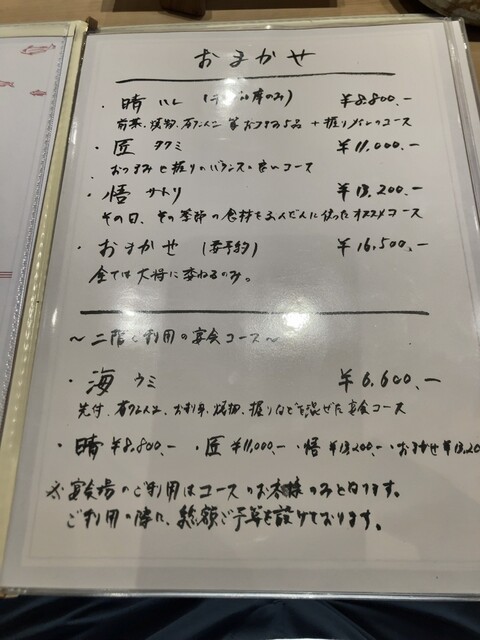 おまかせ
・晴 ハレ ¥8.800.-
前菜、焼物、茶ワンムシ 等おつまみ5品 + 握りメインのコース
・匠 タクミ ¥11,000.-
おつまみと握りのバランスの良いコース
・悟 サトリ ¥13,200.-
その日、その季節の食材をふんだんに使ったオススメコース
・おまかせ (要予約) ¥16,500.-
全ては大将に委ねるのみ。
〜二階ご利用の宴会コース〜
・海 ウミ ¥6,600.-
先付、茶ワンムシ、お刺身、焼物、握りなどを混ぜた宴会コース
・晴 ¥8.800.- ・匠 ¥11,000.- ・悟 ¥13,200.- ・おまかせ
※宴会場のご利用はコースのお客様のみと成ります。
ご利用の際に、総額ご予算を設けております。